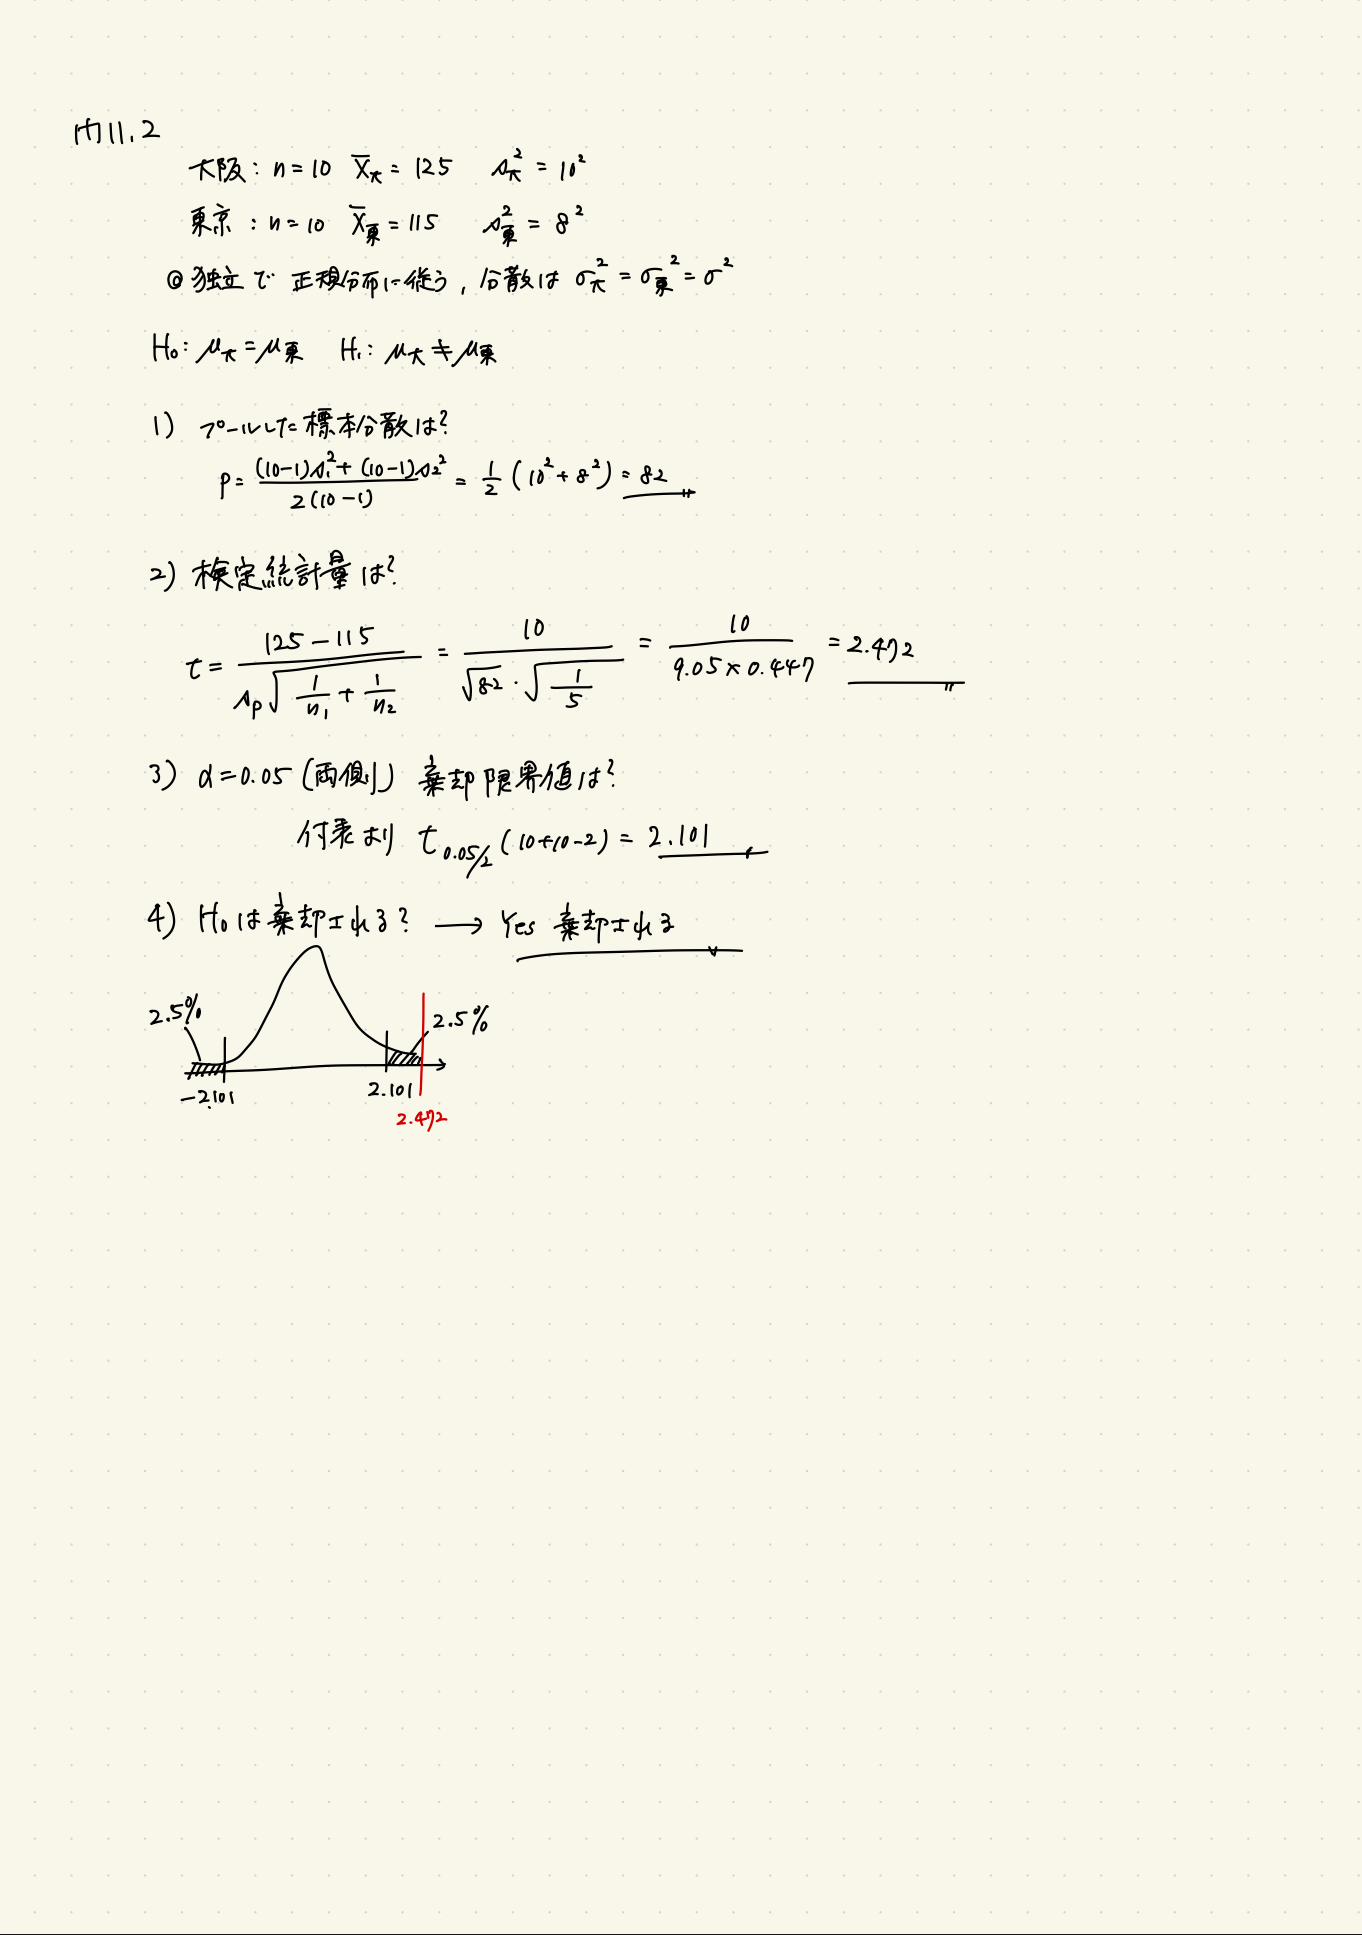 内11.2
大阪: n=10 X̄大=125 s大²=10²
東京: n=10 X̄東=115 s東²=8²
◎独立で 正規分布に従う, 分散は σ大²=σ東²=σ²
H₀: μ大=μ東 H₁: μ大≠μ東
1) プールした標本分散は?
P= (10-1)s₁²+(10-1)s₂² / 2(10-1) = 1/2 (10²+8²) = 82
2) 検定統計量は?
t= 125-115 / sp√(1/n₁+1/n₂) = 10 / √82・√(1/5) = 10 / 9.05×0.447 = 2.472
3) α=0.05 (両側) 棄却限界値は?
付表より t0.05/2 (10+10-2) = 2.101
4) H₀は棄却される? → Yes 棄却される
2.5% 2.5%
-2.101 2.101
2.472